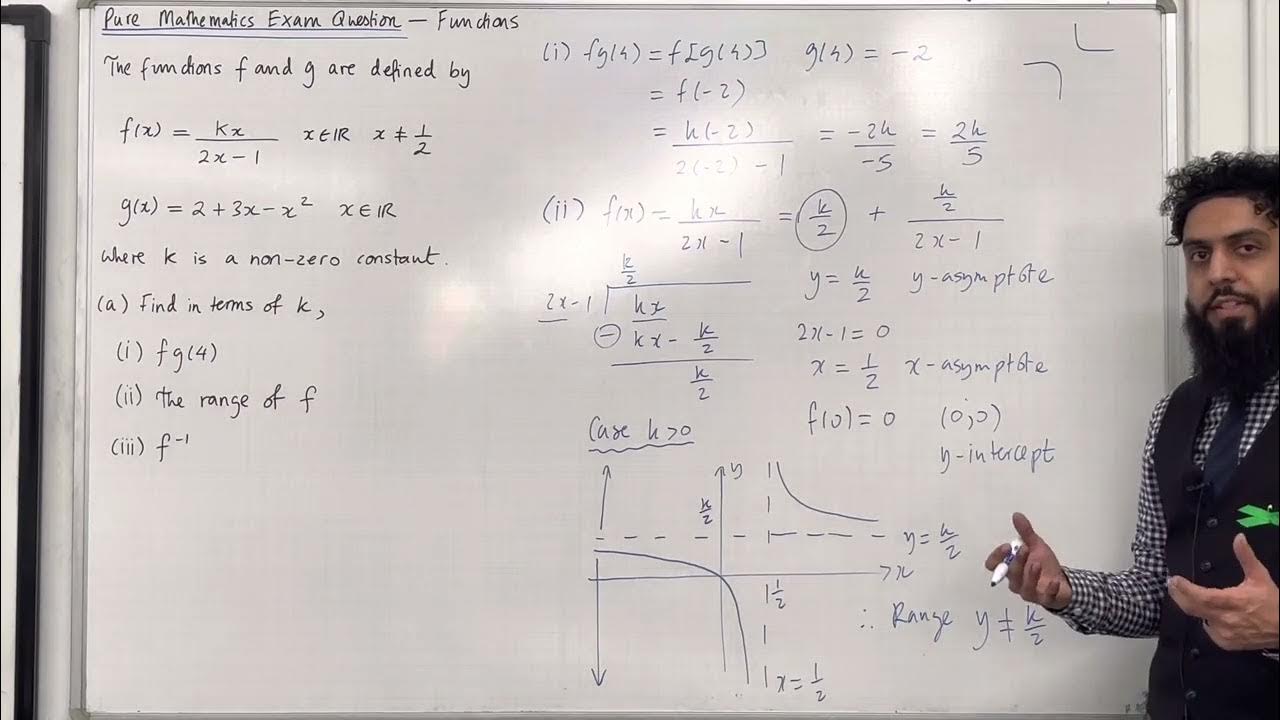 Pure Mathematics Exam Question – Functions
The functions f and g are defined by
f(x) = kx / (2x − 1)   x ∈ ℝ   x ≠ 1/2
g(x) = 2 + 3x − x²   x ∈ ℝ
where k is a non-zero constant.
(a) Find in terms of k,
(i) fg(4)
(ii) the range of f
(iii) f⁻¹
(i) fg(4) = f[g(4)]   g(4) = −2
= f(−2)
= k(−2) / (2(−2) − 1) = −2k / −5 = 2k / 5
(ii) f(x) = kx / (2x − 1) = k/2 + (k/2) / (2x − 1)
k/2
2x − 1   kx
− kx − k/2
k/2
y = k/2   y-asymptote
2x − 1 = 0
x = 1/2   x-asymptote
f(0) = 0   (0,0)
y-intercept
Case k > 0
y
k/2
y = k/2
x
1/2
x = 1/2
∴ Range y ≠ k/2